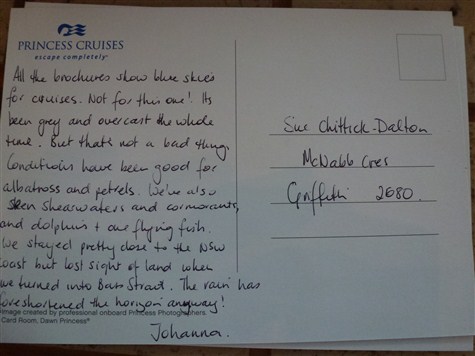 PRINCESS CRUISES
escape completely
All the brochures show blue skies
for cruises. Not for this one! Its
been grey and overcast the whole
time. But that's not a bad thing.
Conditions have been good for
albatross and petrels. We've also
seen shearwaters and cormorants
and dolphins + one flying fish.
We stayed pretty close to the NSW
coast but lost sight of land when
we turned into Bass Strait. The rain has
foreshortened the horizon anyway!
Johanna.
Image created by professional onboard Princess Photographers.
Card Room, Dawn Princess®
Sue Chittick-Dalton
McNabb Cres
Griffith 2680.